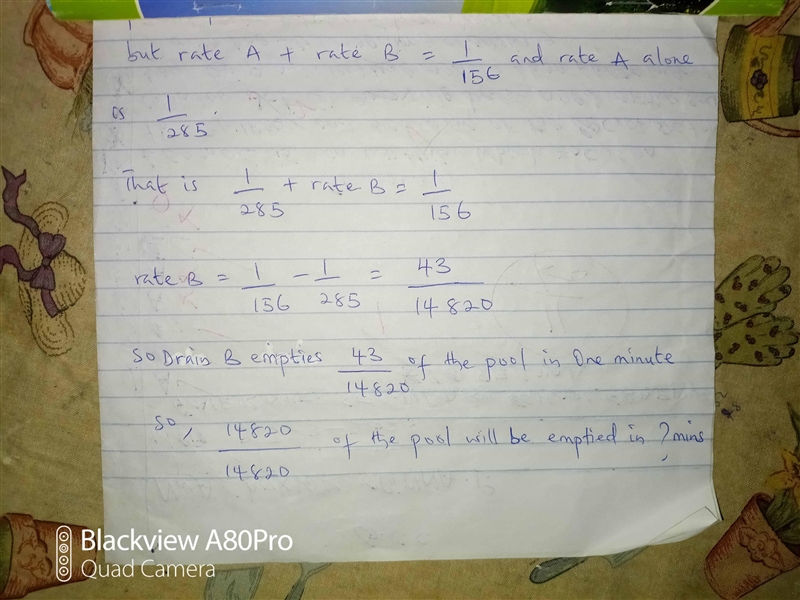 but rate A + rate B = 1/156 and rate A alone
is 1/285.
That is 1/285 + rate B = 1/156
rate B = 1/156 - 1/285 = 43/14820
So Drain B empties 43/14820 of the pool in One minute
So, 14820/14820 of the pool will be emptied in ? mins
Blackview A80Pro
Quad Camera